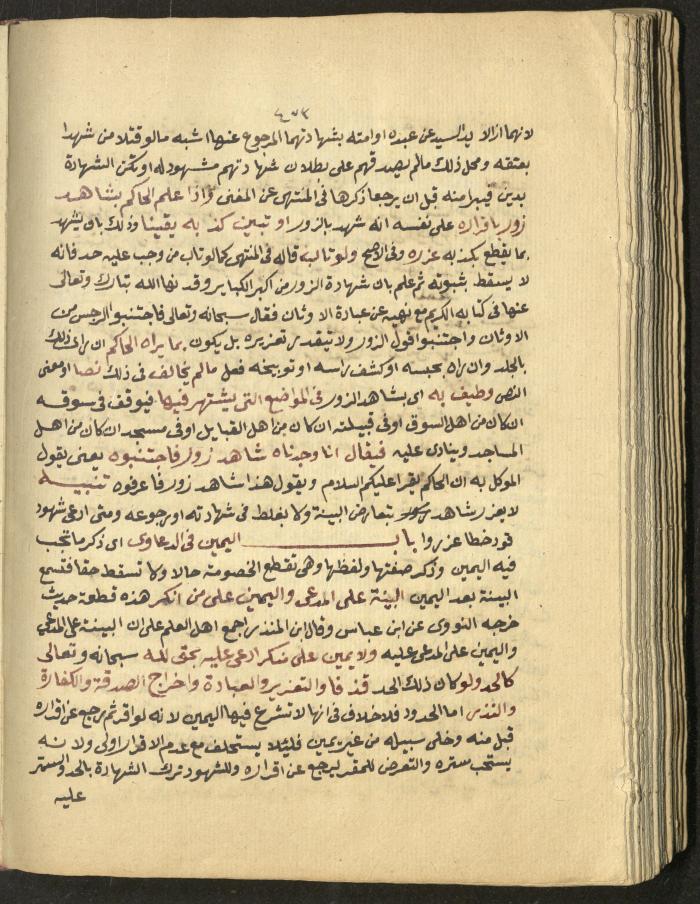 ٤٧٣
لانهما ازالا يد السيد عن عبده او امته بشهادتهما المرجوع عنها اشبه مالو قتلا من شهدا
بعتقه ومحل ذلك مالم يصدقهم على بطلان شهادتهم مشهود له او تكن الشهادة
بدين فيبرا منه قبل ان يرجعا ذكرها فى المنتهى عن المغنى واذا علم الحاكم بشاهد
زور باقراره على نفسه انه شهد بالزور او تبين كذبه يقينا وذلك بان يشهد
بما يقطع بكذبه عزره وفى الاصح ولو تاب قاله فى المنتهى كما لو تاب من وجب عليه حد فانه
لا يسقط بثبوته ثم علم بان شهادة الزور من اكبر الكباير وقد نها الله تبارك وتعالى
عنها فى كتابه الكريم مع نهيه عن عبادة الاوثان فقال سبحانه وتعالى فاجتنبوا الرجس من
الاوثان واجتنبوا قول الزور ولا يتقدر تعزيره بل يكون بما يراه الحاكم ان راى ذلك
بالجلد وان راه بحبسه او كشف راسه او توبيخه فعل مالم يخالف فى ذلك نصا او معنى
النص وطيف به اى بشاهد الزور فى المواضع التى يشتهر فيها فيوقف فى سوقه
ان كان من اهل السوق او فى قبيلته ان كان من اهل القبايل او فى مسجد ان كان من اهل
المساجد وينادى عليه فيقال انا وجدناه شاهد زور فاجتنبوه يعنى يقول
الموكل به ان الحاكم يقرا عليكم السلام ويقول هذا شاهد زور فاعرفوه تنبيه
لا يعزر شاهد بتعارض البينة ولا بغلط فى شهادته او رجوعه ومتى ادعى شهود
قود خطا عزروا باب اليمين فى الدعاوى اى ذكر ما تجب
فيه اليمين وذكر صفتها ولفظها وهى تقطع الخصومة حالا ولا تسقط حقا فتسمع
البينة بعد اليمين البينة على المدعى واليمين على من انكر هذه قطعة حديث
خرجه النووى عن ابن عباس وقال ابن المنذر اجمع اهل العلم على ان البينة على المدعي
واليمين على المدعى عليه ولا يمين على منكر ادعى عليه بحق لله سبحانه وتعالى
كالحد ولو كان ذلك الحد قذفا والتعزير والعبادة واخراج الصدقة والكفارة
والنذر اما الحدود فلا خلاف فى انها لا تشرع فيها اليمين لانه لو اقر ثم رجع عن اقراره
قبل منه وخلى سبيله من غير يمين فلئلا يستحلف مع عدم الاقرار اولى ولانه
يستحب ستره والتعرض للمقر ليرجع عن اقراره وللشهود ترك الشهادة بالحد والستر
عليه